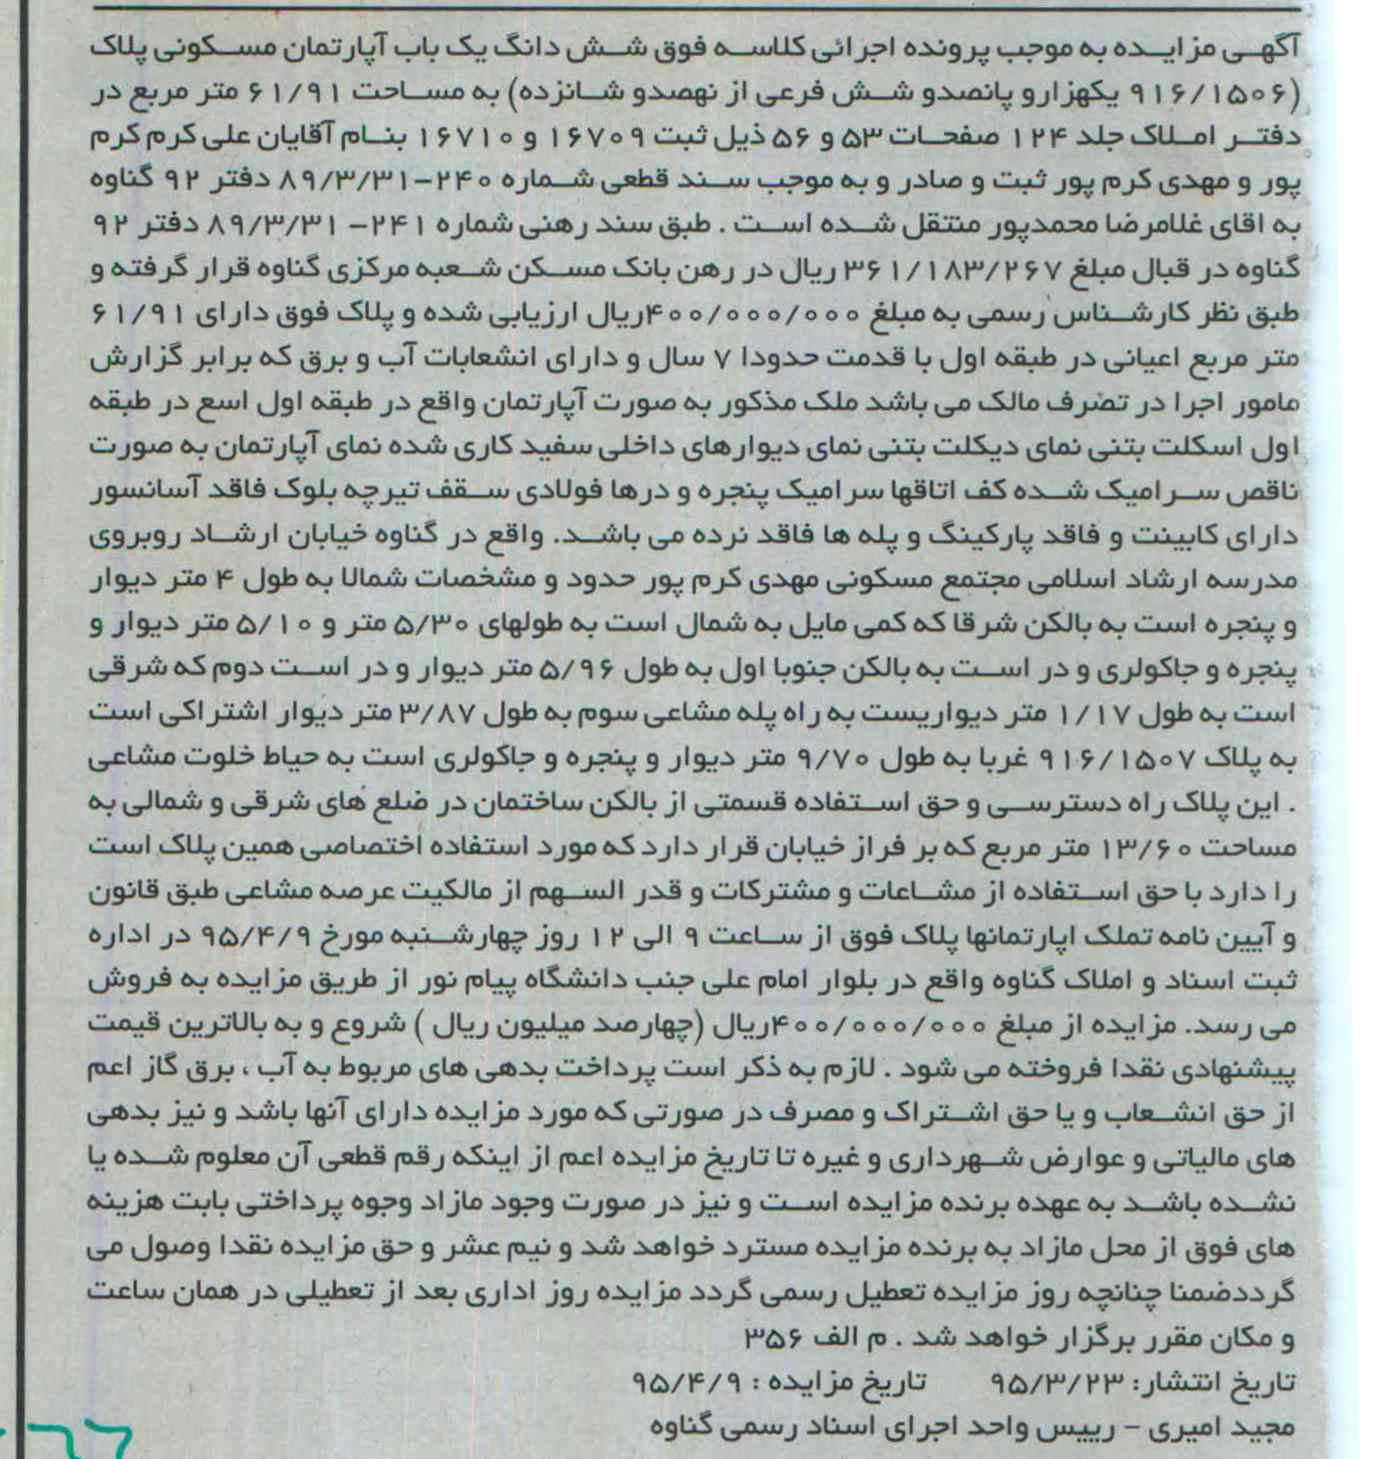 آگهی مزایده به موجب پرونده اجرائی کلاسه فوق شش دانگ یک باب آپارتمان مسکونی پلاک
(۹۱۶/۱۵۰۶ یکهزارو پانصدو شش فرعی از نهصدو شانزده) به مساحت ۶۱/۹۱ متر مربع در
دفتر املاک جلد ۱۲۴ صفحات ۵۳ و ۵۶ ذیل ثبت ۱۶۷۰۹ و ۱۶۷۱۰ بنام آقایان علی کرم کرم
پور و مهدی کرم پور ثبت و صادر و به موجب سند قطعی شماره ۲۴۰-۸۹/۳/۳۱ دفتر ۹۲ گناوه
به اقای غلامرضا محمدپور منتقل شده است . طبق سند رهنی شماره ۲۴۱- ۸۹/۳/۳۱ دفتر ۹۲
گناوه در قبال مبلغ ۳۶۱/۱۸۳/۲۶۷ ریال در رهن بانک مسکن شعبه مرکزی گناوه قرار گرفته و
طبق نظر کارشناس رسمی به مبلغ ۴۰۰/۰۰۰/۰۰۰ریال ارزیابی شده و پلاک فوق دارای ۶۱/۹۱
متر مربع اعیانی در طبقه اول با قدمت حدودا ۷ سال و دارای انشعابات آب و برق که برابر گزارش
مامور اجرا در تصرف مالک می باشد ملک مذکور به صورت آپارتمان واقع در طبقه اول اسع در طبقه
اول اسکلت بتنی نمای دیکلت بتنی نمای دیوارهای داخلی سفید کاری شده نمای آپارتمان به صورت
ناقص سرامیک شده کف اتاقها سرامیک پنجره و درها فولادی سقف تیرچه بلوک فاقد آسانسور
دارای کابینت و فاقد پارکینگ و پله ها فاقد نرده می باشد. واقع در گناوه خیابان ارشاد روبروی
مدرسه ارشاد اسلامی مجتمع مسکونی مهدی کرم پور حدود و مشخصات شمالا به طول ۴ متر دیوار
و پنجره است به بالکن شرقا که کمی مایل به شمال است به طولهای ۵/۳۰ متر و ۵/۱۰ متر دیوار و
پنجره و جاکولری و در است به بالکن جنوبا اول به طول ۵/۹۶ متر دیوار و در است دوم که شرقی
است به طول ۱/۱۷ متر دیواریست به راه پله مشاعی سوم به طول ۳/۸۷ متر دیوار اشتراکی است
به پلاک ۹۱۶/۱۵۰۷ غربا به طول ۹/۷۰ متر دیوار و پنجره و جاکولری است به حیاط خلوت مشاعی
. این پلاک راه دسترسی و حق استفاده قسمتی از بالکن ساختمان در ضلع های شرقی و شمالی به
مساحت ۱۳/۶۰ متر مربع که بر فراز خیابان قرار دارد که مورد استفاده اختصاصی همین پلاک است
را دارد با حق استفاده از مشاعات و مشترکات و قدر السهم از مالکیت عرصه مشاعی طبق قانون
و آیین نامه تملک اپارتمانها پلاک فوق از ساعت ۹ الی ۱۲ روز چهارشنبه مورخ ۹۵/۴/۹ در اداره
ثبت اسناد و املاک گناوه واقع در بلوار امام علی جنب دانشگاه پیام نور از طریق مزایده به فروش
می رسد. مزایده از مبلغ ۴۰۰/۰۰۰/۰۰۰ریال (چهارصد میلیون ریال ) شروع و به بالاترین قیمت
پیشنهادی نقدا فروخته می شود . لازم به ذکر است پرداخت بدهی های مربوط به آب ، برق گاز اعم
از حق انشعاب و یا حق اشتراک و مصرف در صورتی که مورد مزایده دارای آنها باشد و نیز بدهی
های مالیاتی و عوارض شهرداری و غیره تا تاریخ مزایده اعم از اینکه رقم قطعی آن معلوم شده یا
نشده باشد به عهده برنده مزایده است و نیز در صورت وجود مازاد وجوه پرداختی بابت هزینه
های فوق از محل مازاد به برنده مزایده مسترد خواهد شد و نیم عشر و حق مزایده نقدا وصول می
گرددضمنا چنانچه روز مزایده تعطیل رسمی گردد مزایده روز اداری بعد از تعطیلی در همان ساعت
و مکان مقرر برگزار خواهد شد . م الف ۳۵۶
تاریخ انتشار: ۹۵/۳/۲۳ تاریخ مزایده : ۹۵/۴/۹
مجید امیری - رییس واحد اجرای اسناد رسمی گناوه